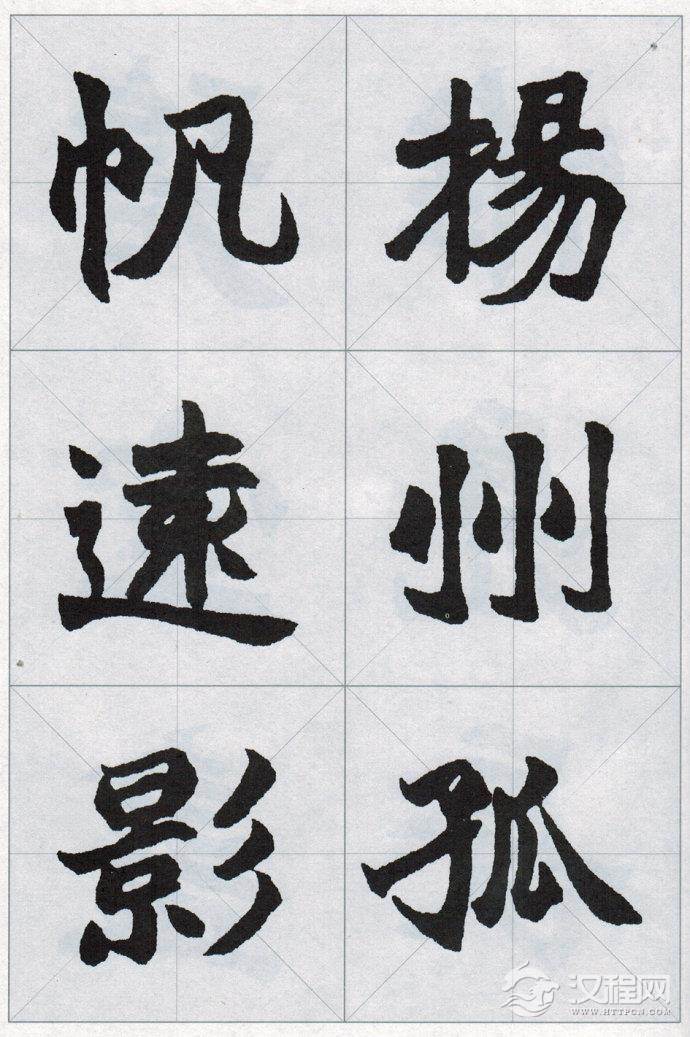 揚州孤
帆遠影
汉程网
WWW.HTTPCN.COM